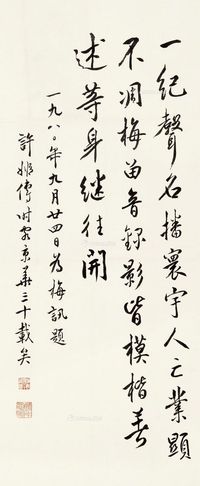 一紀聲名播寰宇人亡業顯
不凋梅留音錄影皆模楷著
述等身継往開
一九八〇年九月廿四日為梅訊題
許姬傳時客京華三十載矣